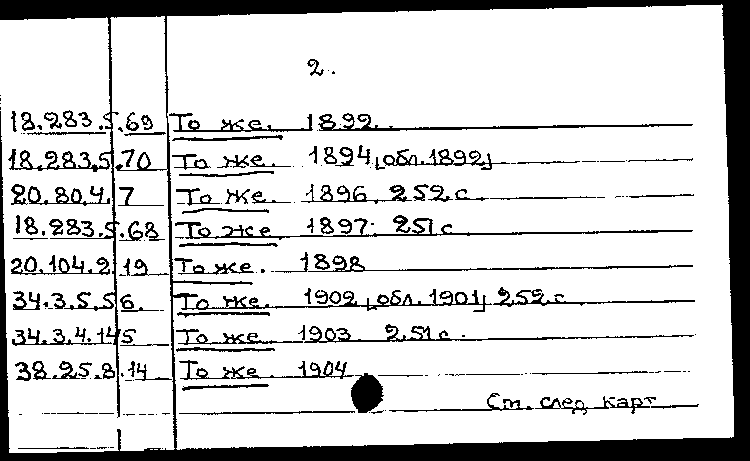 2.
18.283.5.69 То же. 1892.
18.283.5.70 То же. 1894 [обл. 1892]
20.80.4.7 То же. 1896. 252 с.
18.283.5.68 То же 1897. 251 с.
20.104.2.19 То же. 1898
34.3.5.56. То же. 1902 [обл. 1901] 252 с.
34.3.4.145 То же 1903. 251 с.
38.25.8.14 То же 1904
См. след карт